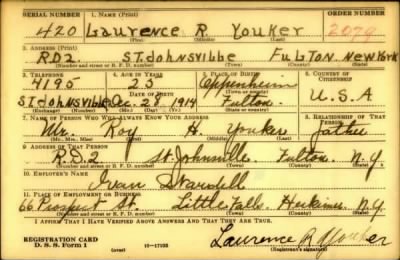 SERIAL NUMBER 1. NAME (Print) ORDER NUMBER
420 Laurence R. Youker 2079
(First) (Middle) (Last)
2. ADDRESS (Print)
R.D.2. ST. JOHNSVILLE FULTON NEW YORK
(Number and street or R. F. D. number) (Town) (County) (State)
3. TELEPHONE 4. AGE IN YEARS 5. PLACE OF BIRTH 6. COUNTRY OF CITIZENSHIP
4195 25 Oppenheim
DATE OF BIRTH (Town or county)
ST. JOHNSVILLE Dec. 28 1914 Fulton U.S.A
(Exchange) (Number) (Mo.) (Day) (Yr.) (State or country)
7. NAME OF PERSON WHO WILL ALWAYS KNOW YOUR ADDRESS 8. RELATIONSHIP OF THAT PERSON
Mr. Roy H. Youker father
(Mr., Mrs., Miss) (First) (Middle) (Last)
9. ADDRESS OF THAT PERSON
R.D.2 St. Johnsville Fulton N.Y
(Number and street or R. F. D. number) (Town) (County) (State)
10. EMPLOYER'S NAME
Ivan
11. PLACE OF EMPLOYMENT OR BUSINESS
66 Prospect St. Little Falls Herkimer N.Y
(Number and street or R. F. D. number) (Town) (County) (State)
I AFFIRM THAT I HAVE VERIFIED ABOVE ANSWERS AND THAT THEY ARE TRUE.
REGISTRATION CARD
D. S. S. Form 1 (over) 16—17105 Laurence R Youker
(Registrant's signature)